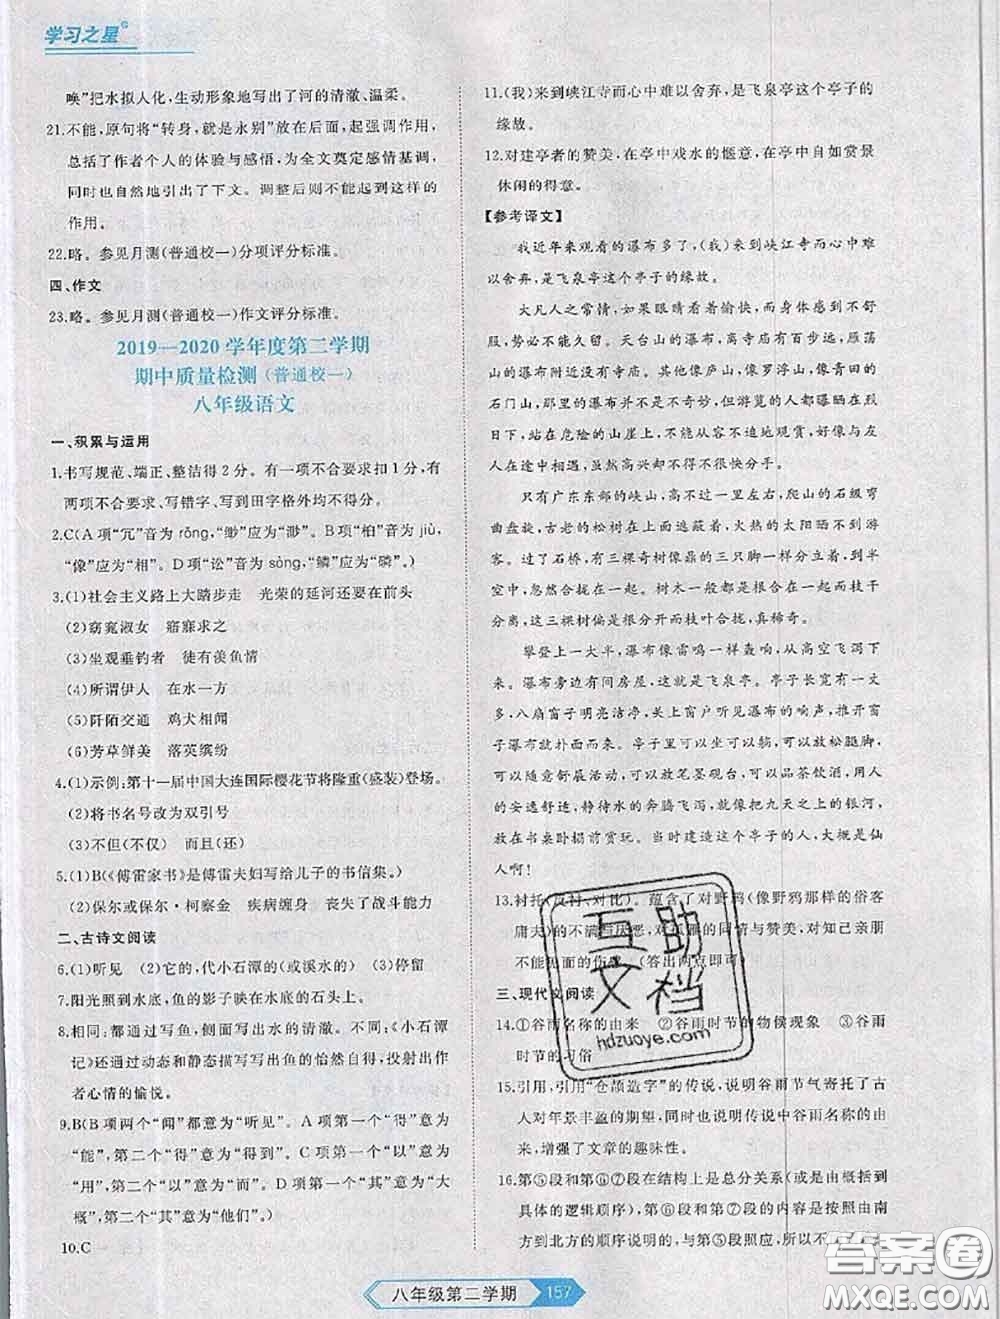 学习之星
唤”把水拟人化,生动形象地写出了河的清澈、温柔。
21.不能,原句将“转身,就是永别”放在后面,起强调作用,
总括了作者个人的体验与感悟,为全文奠定感情基调,
同时也自然地引出了下文。调整后则不能起到这样的
作用。
22.略。参见月测(普通校一)分项评分标准。
四、作文
23.略。参见月测(普通校一)作文评分标准。
2019—2020 学年度第二学期
期中质量检测(普通校一)
八年级语文
一、积累与运用
1.书写规范、端正、整洁得2分。有一项不合要求扣1分,有
两项不合要求、写错字、写到田字格外均不得分。
2.C(A项“冗”音为rǒng,“缈”应为“渺”。B项“柏”音为jiù,
“像”应为“相”。D项“讼”音为sòng,“鳞”应为“磷”。)
3.(1)社会主义路上大踏步走 光荣的延河还要在前头
(2)窈窕淑女 寤寐求之
(3)坐观垂钓者 徒有羡鱼情
(4)所谓伊人 在水一方
(5)阡陌交通 鸡犬相闻
(6)芳草鲜美 落英缤纷
4.(1)示例:第十一届中国大连国际樱花节将隆重(盛装)登场。
(2)将书名号改为双引号
(3)不但(不仅) 而且(还)
5.(1)B(《傅雷家书》是傅雷夫妇写给儿子的书信集。)
(2)保尔或保尔·柯察金 疾病缠身 丧失了战斗能力
二、古诗文阅读
6.(1)听见 (2)它的,代小石潭的(或溪水的) (3)停留
7.阳光照到水底,鱼的影子映在水底的石头上。
8.相同:都通过写鱼,侧面写出水的清澈。不同:《小石潭
记》还通过动态和静态描写写出鱼的怡然自得,投射出作
者心情的愉悦。
9.B(B项两个“闻”都意为“听见”。A项第一个“得”意为
“能”,第二个“得”意为“得到”。C项第一个“以”意为
“用”,第二个“以”意为“而”。D项第一个“其”意为“大
概”,第二个“其”意为“他们”。)
10.C
11.(我)来到峡江寺而心中难以舍弃,是飞泉亭这个亭子的
缘故。
12.对建亭者的赞美,在亭中戏水的惬意,在亭中自如赏景
休闲的得意。
【参考译文】
我近年来观看的瀑布多了,(我)来到峡江寺而心中难
以舍弃,是飞泉亭这个亭子的缘故。
大凡人之常情,如果眼睛看着愉快,身体感到不舒
服,形势不能久留。天台山的瀑布,离寺庙有百步,雁荡
山的瀑布附近没有寺庙。其他像庐山,像罗浮山,像青田的
石门山,那里的瀑布并不是不奇妙,但游览的人都暴露在烈
日下,站在危险的山崖上,不能从容不迫地观赏,好像与友
人在途中相遇,虽然高兴却不得不很快分手。
只有广东东部的峡山,高不过一里左右,爬山的石级弯
弯曲盘旋,古老的松树在上面遮蔽着,火热的太阳晒不到游
客。过了石桥,有三棵奇树像鼎的三只脚一样分立着,到半
空中忽然合拢在一起。树木一般都是根合并在一起而枝干
分开,这三棵树偏是根分开而枝叶合拢,真稀奇。
攀登上一大半,瀑布像雷鸣一样轰响,从高空飞泻下
来。瀑布旁边有间房屋,就是飞泉亭。亭子长宽有一丈
多,八扇窗子明亮洁净,关上窗户听见瀑布的响声,推开窗
子瀑布就扑面而来。亭子里可以坐可以躺,可以放松腿脚,
可以随意舒展活动,可以放笔墨砚台,可以品茶饮酒,用人
的安逸舒适,静待水的奔腾飞泻,就像把九天之上的银河,
放在书桌卧榻前赏玩。当时建造这个亭子的人,大概是仙
人啊!
13.衬托(反衬、对比)。蕴含了对野鸦(像野鸦那样的俗客
庸夫)的不满与厌恶,对孤雁的同情与赞美,对知己亲朋
不能见面的伤感。(答出两点即可)
三、现代文阅读
14.①谷雨名称的由来 ②谷雨时节的物候现象 ③谷雨
时节的习俗
15.引用,引用“仓颉造字”的传说,说明谷雨节气寄托了古
人对年景丰盈的期望,同时也说明传说中谷雨名称的由
来,增强了文章的趣味性。
16.第⑤段和第⑥⑦段在结构上是总分关系(或是由概括到
具体的逻辑顺序),第⑥段和第⑦段又是按照由南
方到北方的顺序说明,与第⑤段照应,所以不
八年级第二学期
157
互助
文档
hdzuoye.com
答案圈
MXQE.COM